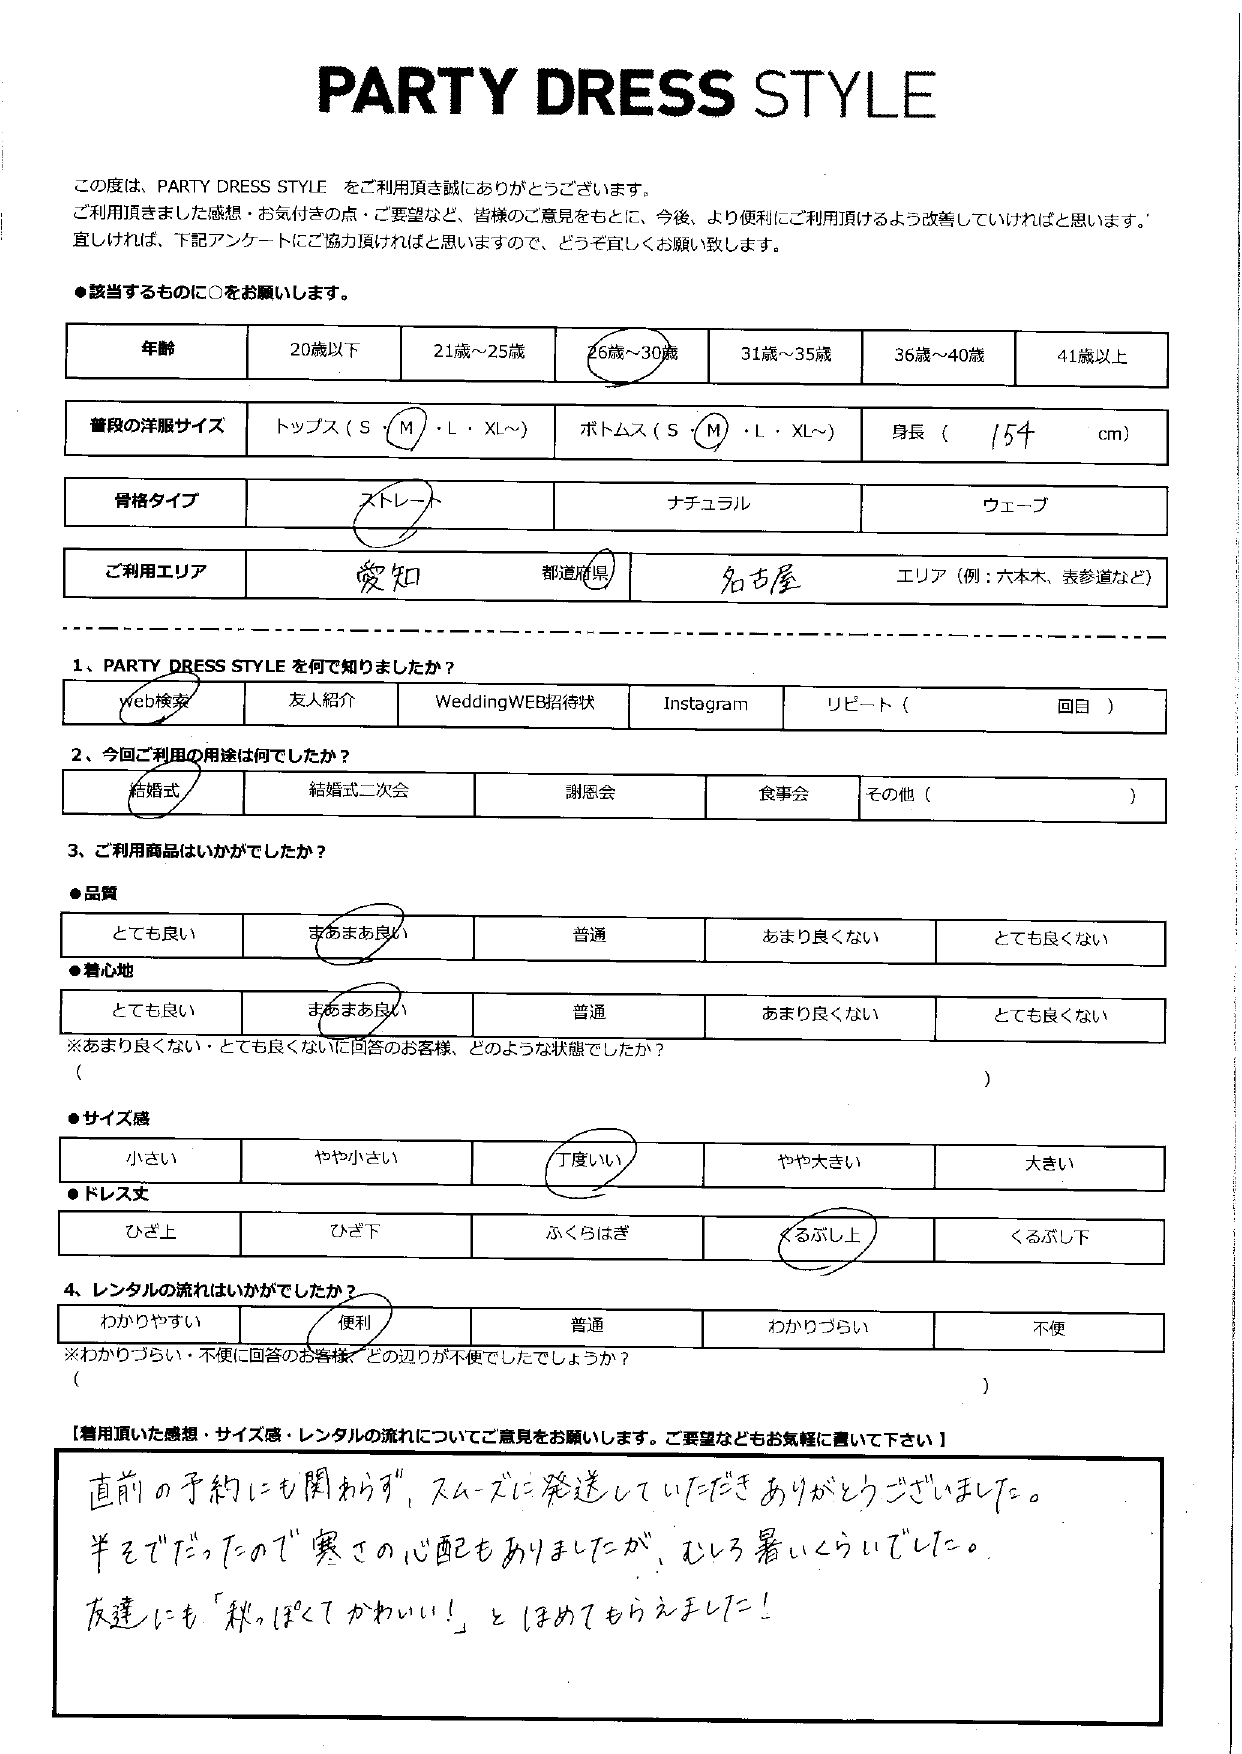 PARTY DRESS STYLE
この度は、PARTY DRESS STYLE をご利用頂き誠にありがとうございます。
ご利用頂きました感想・お気付きの点・ご要望など、皆様のご意見をもとに、今後、より便利にご利用頂けるよう改善していければと思います。
宜しければ、下記アンケートにご協力頂ければと思いますので、どうぞ宜しくお願い致します。
●該当するものに○をお願いします。
年齢 20歳以下 21歳～25歳 26歳～30歳 31歳～35歳 36歳～40歳 41歳以上
普段の洋服サイズ トップス ( S ・ M ・L ・ XL～) ボトムス ( S ・ M ・L ・ XL～) 身長 ( 154 cm)
骨格タイプ ストレート ナチュラル ウェーブ
ご利用エリア 愛知 都道府県 名古屋 エリア（例：六本木、表参道など）
1、PARTY DRESS STYLE を何で知りましたか？
web検索 友人紹介 WeddingWEB招待状 Instagram リピート（ 回目 ）
2、今回ご利用の用途は何でしたか？
結婚式 結婚式二次会 謝恩会 食事会 その他（ ）
3、ご利用商品はいかがでしたか？
●品質
とても良い まあまあ良い 普通 あまり良くない とても良くない
●着心地
とても良い まあまあ良い 普通 あまり良くない とても良くない
※あまり良くない・とても良くないに回答のお客様、どのような状態でしたか？
（ ）
●サイズ感
小さい やや小さい 丁度いい やや大きい 大きい
●ドレス丈
ひざ上 ひざ下 ふくらはぎ くるぶし上 くるぶし下
4、レンタルの流れはいかがでしたか？
わかりやすい 便利 普通 わかりづらい 不便
※わかりづらい・不便に回答のお客様、どの辺りが不便でしたでしょうか？
（ ）
【着用頂いた感想・サイズ感・レンタルの流れについてご意見をお願いします。ご要望などもお気軽に書いて下さい】
直前の予約にも関わらず、スムーズに発送していただきありがとうございました。
半そでだったので寒さの心配もありましたが、むしろ暑いくらいでした。
友達にも「秋っぽくてかわいい!」とほめてもらえました!